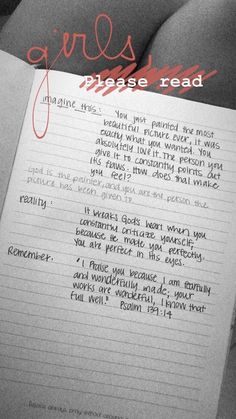 girls,
Please read
imagine this: You just painted the most
beautiful picture ever, it was
exactly what you wanted. You
absolutely love it. The person you
give it to constantly points out
it's flaws. How does that make
you feel?
God is the painter, and you are the person the
picture has been given to.
reality: It breaks God's heart when you
constantly critize yourself,
because He made you perfectly.
You are perfect in His eyes.
Remember: "I praise you because I am fearfully
and wonderfully made; your
works are wonderful, I know that
full well." Psalm 139:14